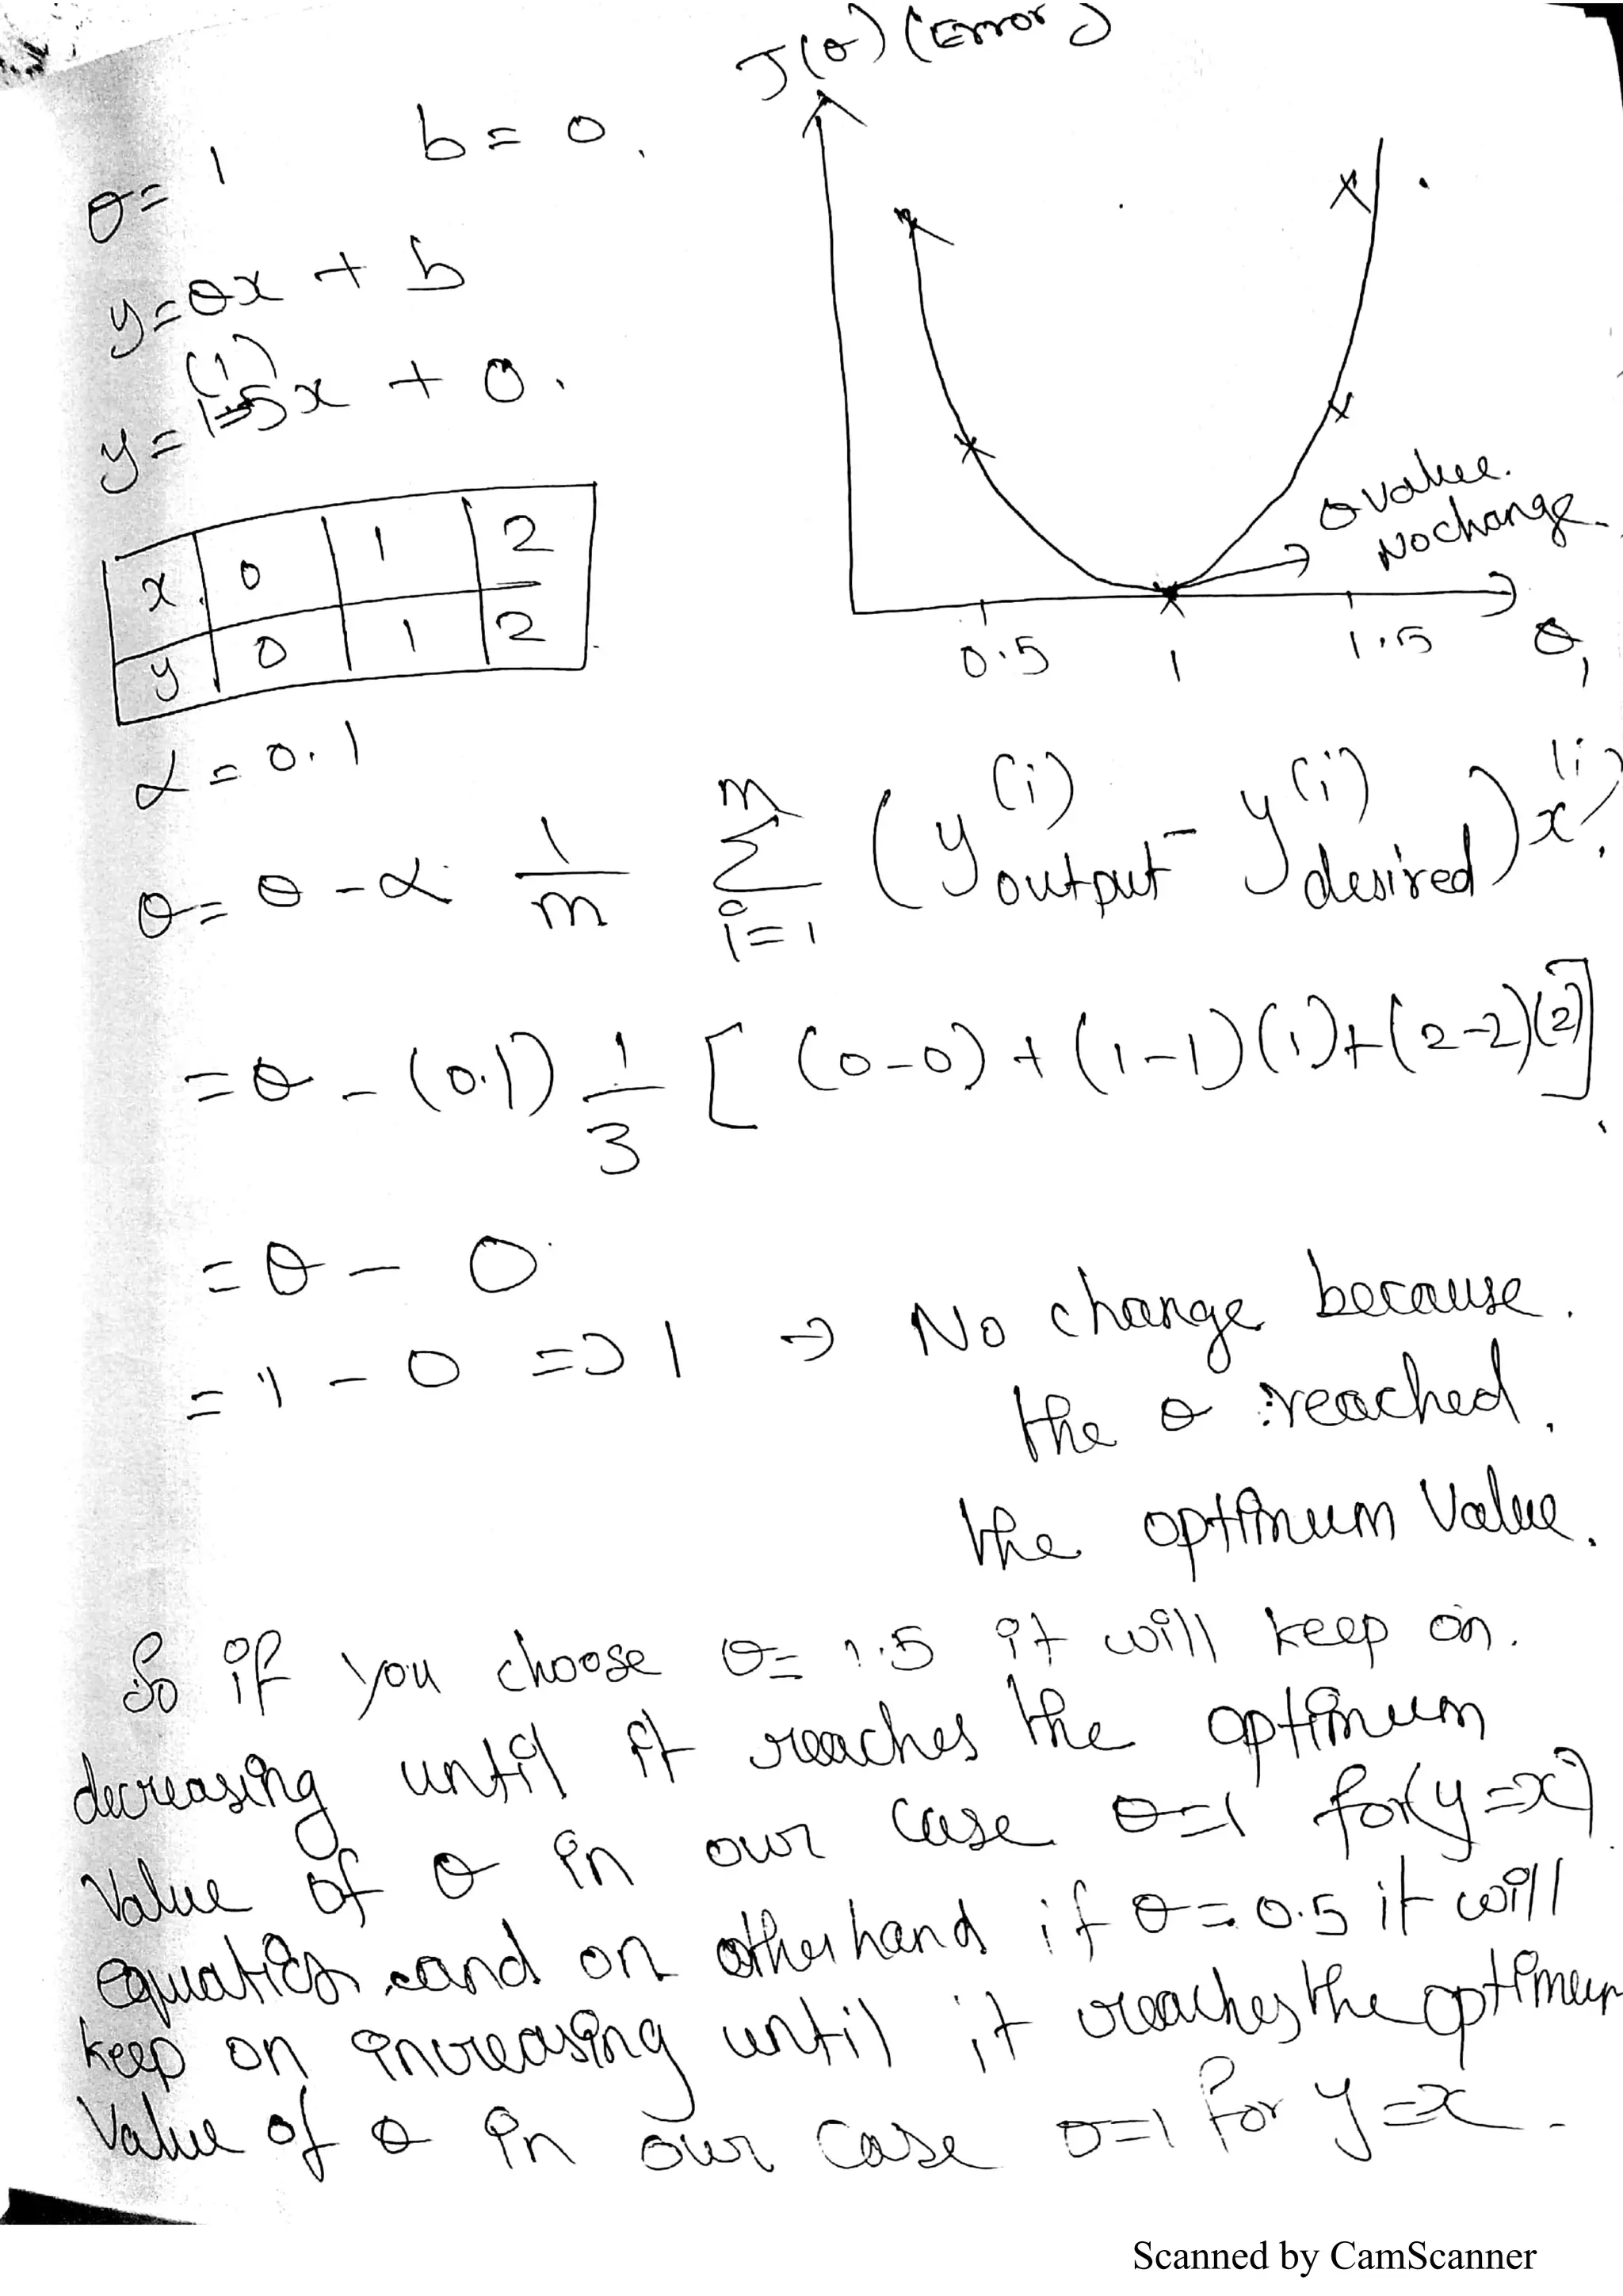 J(θ) (Error)
θ = 1 b = 0.
y = θx + b
(1)
y = 1.5x + 0.
x 0 1 2
y 0 1 2
θ value.
No change.
0.5 1 1.5 θ1
α = 0.1
θ = θ - α 1/m Σ i=1 m (y(i) output - y(i) desired) x(i).
= θ - (0.1) 1/3 [ (0-0) + (1-1)(1) + (2-2)(2) ]
= θ - 0
= 1 - 0 => 1 → No change because.
the θ reached.
the optimum value.
So if you choose θ = 1.5 it will keep on.
decreasing until it reaches the optimum
value of θ in our case θ=1 for (y=x)
equation and on other hand if θ = 0.5 it will
keep on increasing until it reaches the optimum
value of θ in our case θ=1 for y=x.
Scanned by CamScanner